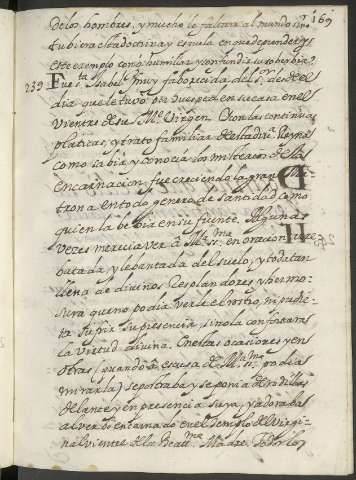 de los hombres, y mucho le faltara al mundo sino 169
tubiera estado cinar y escuela en que deprender y
este exemplo con q humillar y confundir su soberbia.
239 Fue sta. Isabel muy faborecida del Sr. desde el
dia que le tuvo por huesped en su casa en el
Vientre de su Me. Virgen. Con las continuas
platicas, y trato familiar de esta divina Reyna
como sabia y conocia los misterios de la
Encarnacion, fue creciendo la gran Ma-
trona en todo genero de santidad, como
quien la bevia en su fuente. Algunas
vezes merecia ver a Ma. ssma. en oracion, arre-
batada y lebantada del suelo, y toda tan
llena de divinos resplandores y hermo-
sura, que no podia verla el rostro, ni pudie-
ra sufrir su presencia, si no la confortara
la Virtud divina. En estas ocasiones y en
otras (quando a escusa de Ma. ssma. podia
mirarla) se postraba y se ponia de rodillas
delante y en presencia suya, y adoraba
al verbo encarnado en el templo del Virgi-
nal vientre de la Beatma. Madre. Todos los